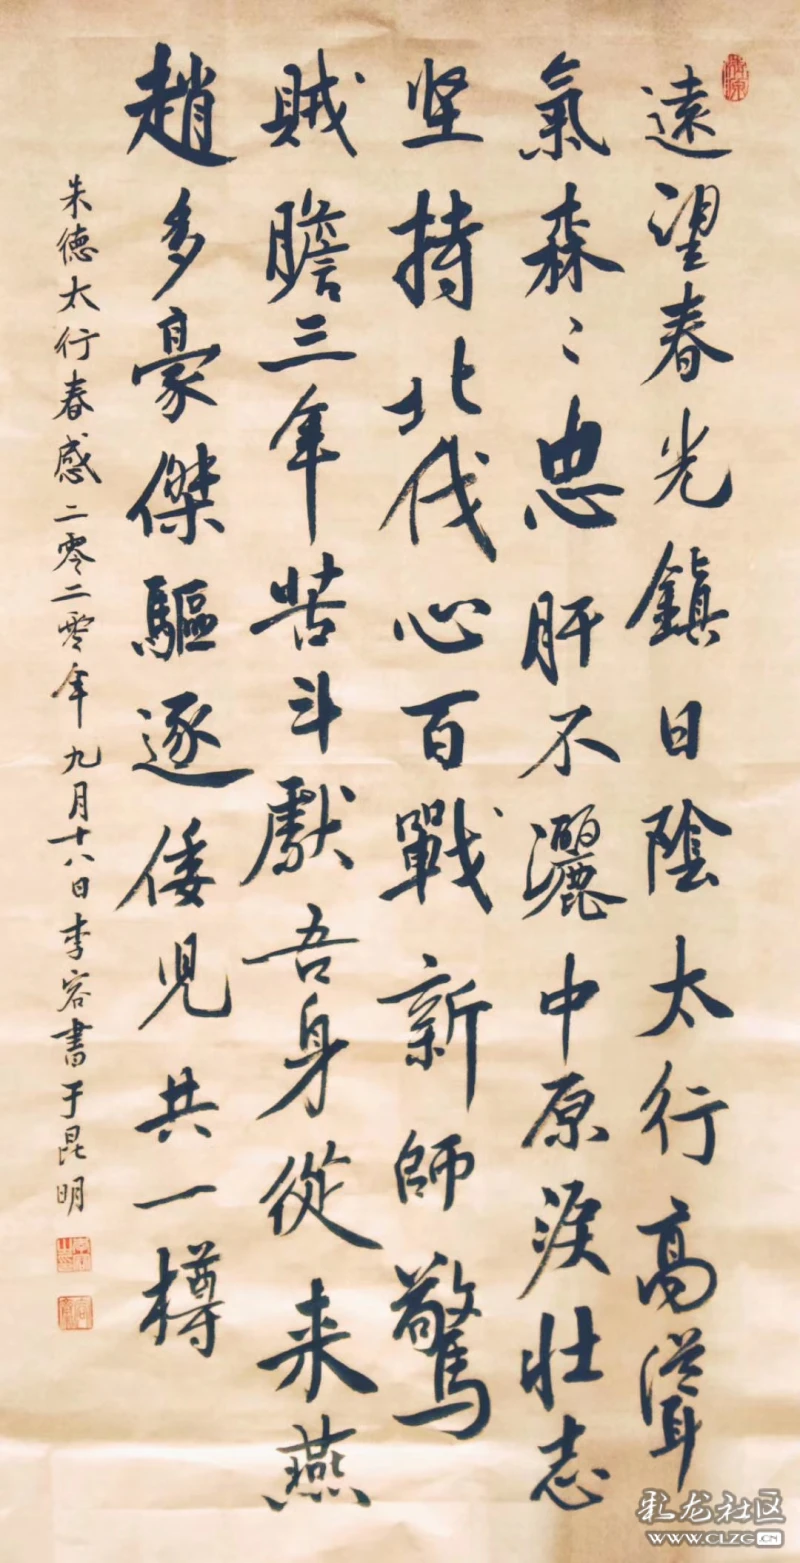 遠望春光鎮日陰太行高聳
氣森〻忠肝不灑中原淚壯志
坚持北伐心百戰新師驚
賊膽三年苦斗獻吾身從来燕
趙多豪傑驅逐倭児共一樽
朱德太行春感二零二零年九月十八日李容書于昆明
彩龙社区
WWW.CLZG.CN